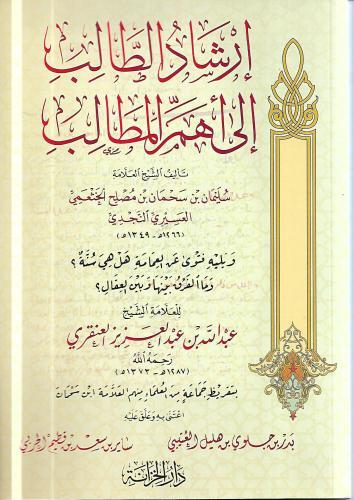 إرشاد الطالب
إلى أهم المطالب
تأليف الشيخ العلامة
سليمان بن سحمان بن مصلح الخثعمي
العسيري النجدي
(١٢٦٦ه - ١٣٤٩ه)
ويليه فتوى عن العمامة هل هي سنة؟
وما الفرق بينها وبين العقال؟
للعلامة الشيخ
عبد الله بن عبد العزيز العنقري
رحمه الله
(١٢٨٧ه - ١٣٧٣ه)
بتقريظ جماعة من العلماء منهم العلامة ابن سحمان
اعتنى به وعلق عليه
بدر بن جلوي بن هليل العتيبي
ساير بن سعد بن فطيم الحربي
دار الخزانة